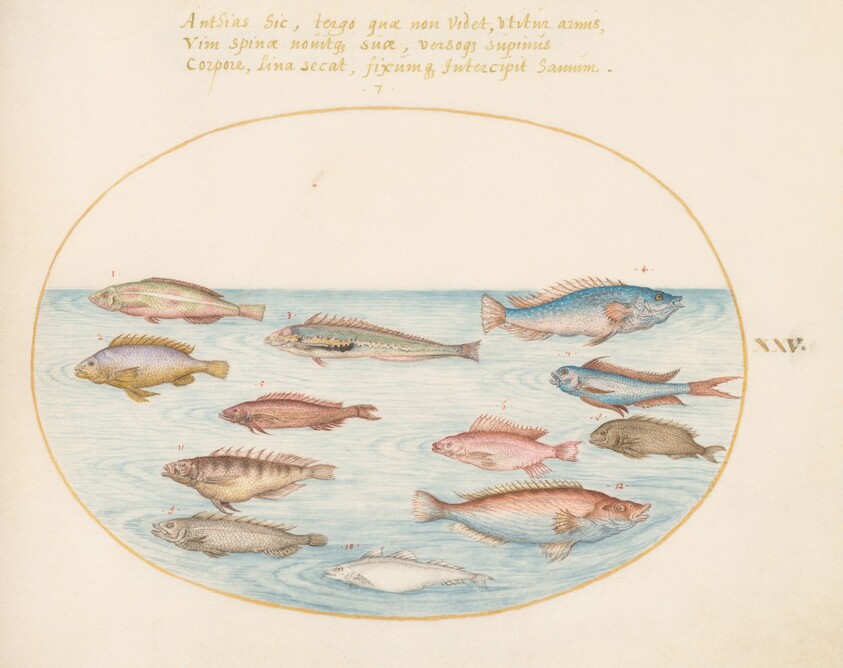 Anthias hic, tergo quæ non videt, vtitur armis,
Vim spinæ nouitq; suæ, versoq; supinus
Corpore, lina secat, fixumq; Intercipit hamum.
7.
1
4
3
XXV.
2
7
5
6
8
11
12
9
10